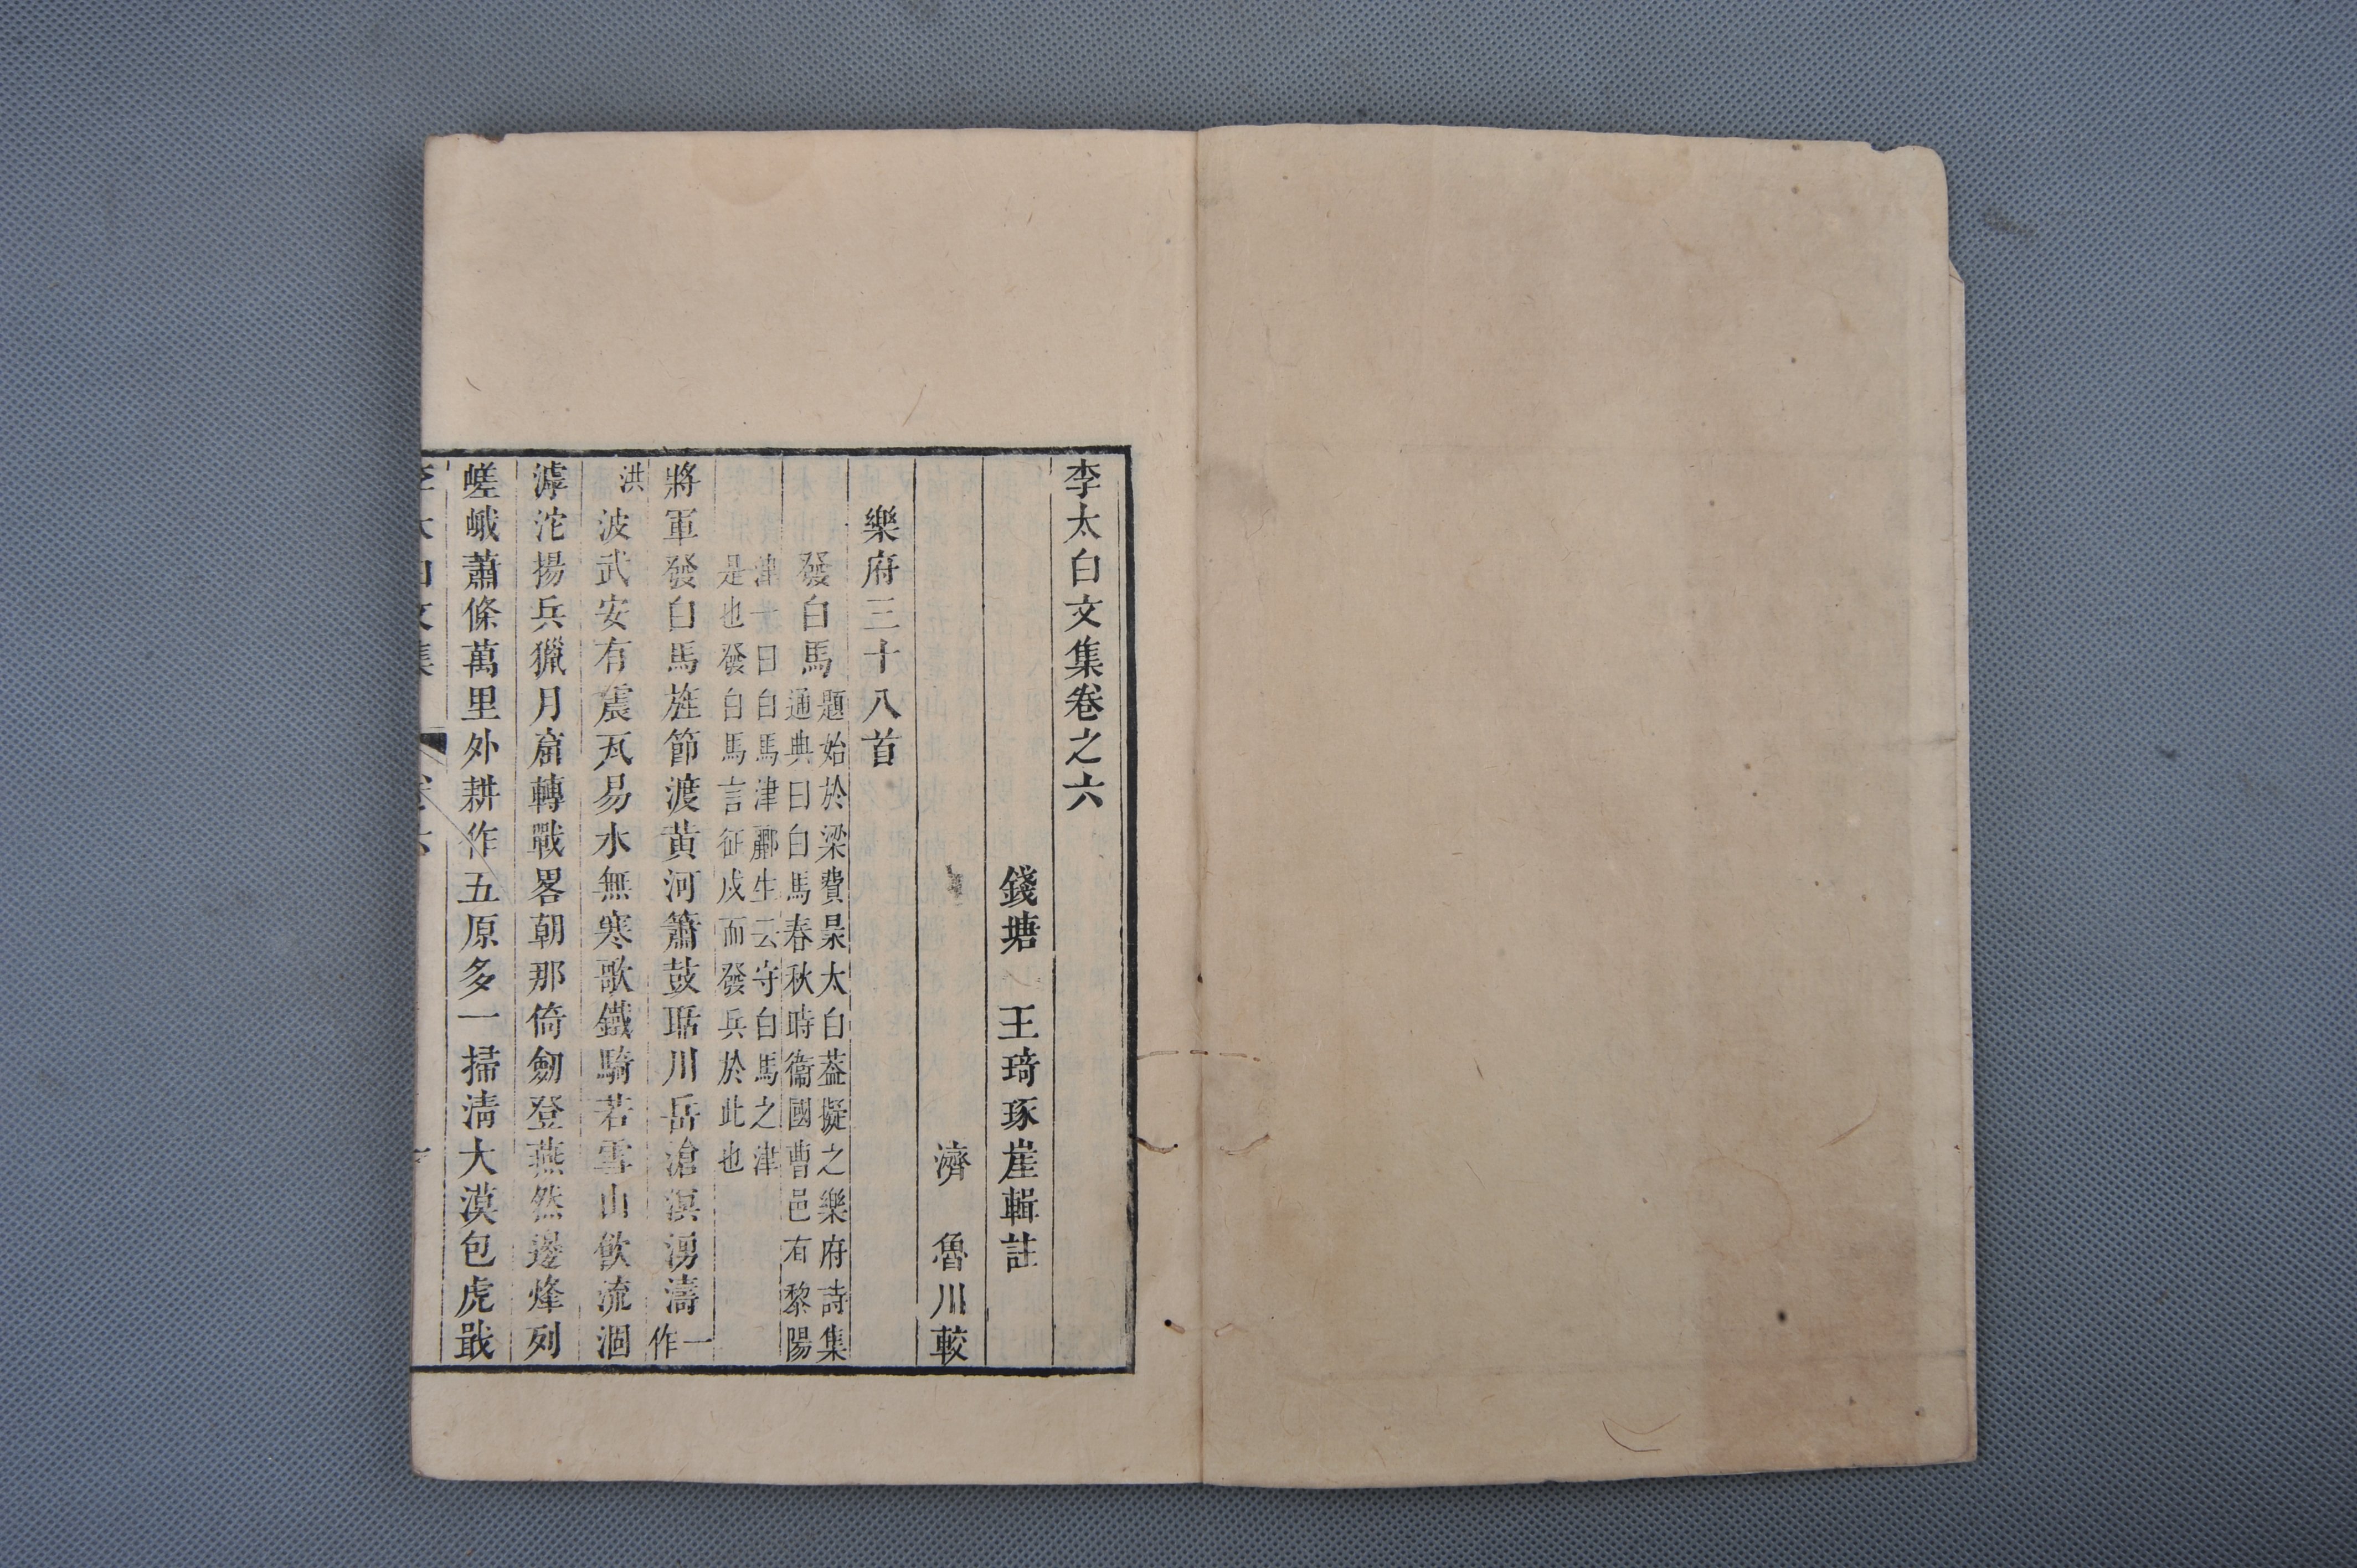 李太白文集卷之六
錢塘 王琦琢崖輯註
濟 魯川較
樂府三十八首
發白馬
題始於梁費昶太白葢擬之樂府詩集
通典曰白馬春秋時衞國曹邑有黎陽
津一名曰白馬津酈生云守白馬之津
是也發白馬言征戍而發兵於此也
將軍發白馬旌節渡黃河簫鼓聒川岳滄溟湧濤一作
洪波武安有震瓦易水無寒歌鐵騎若雪山飲流涸
滹沱揚兵獵月窟轉戰畧朝那倚劒登燕然邊烽列
嵯峨蕭條萬里外耕作五原多一掃淸大漠包虎戢
李太白文集 卷六